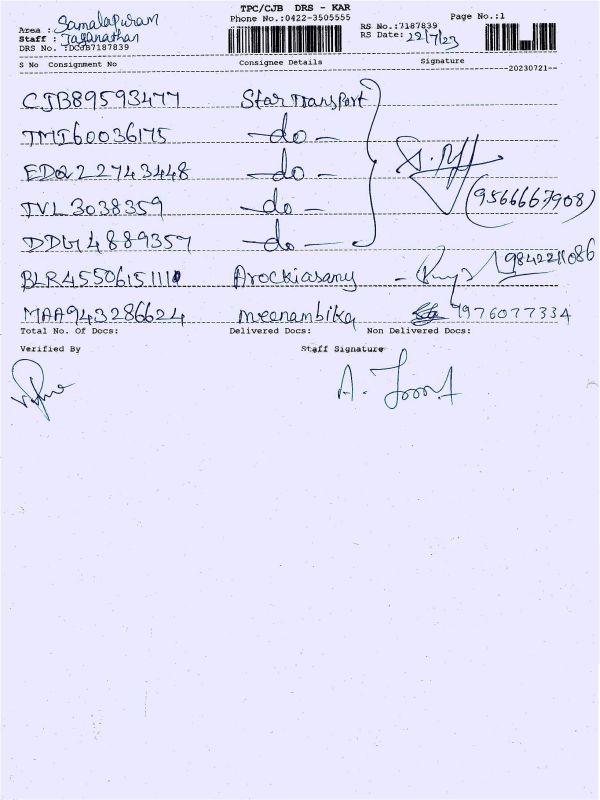 TPC/CJB DRS - KAR
Phone No.:0422-3505555
Page No.:1
Area : Samalapuram
RS No.:7187839
Staff : Jaganathan
RS Date: 22/7/23
DRS No. :DCJB7187839
S No Consignment No Consignee Details Signature
--20230721--
CJB89593477 Star Transport
TMI60036175 - do -
EDQ222743448 - do -
(9566667908)
TVL3038359 - do -
DDG4889357 - do -
BLR45506151110 Arockiasamy - 9842211086
MAA943286624 meenambika 7976077334
Total No. Of Docs: Delivered Docs: Non Delivered Docs:
Verified By Staff Signature